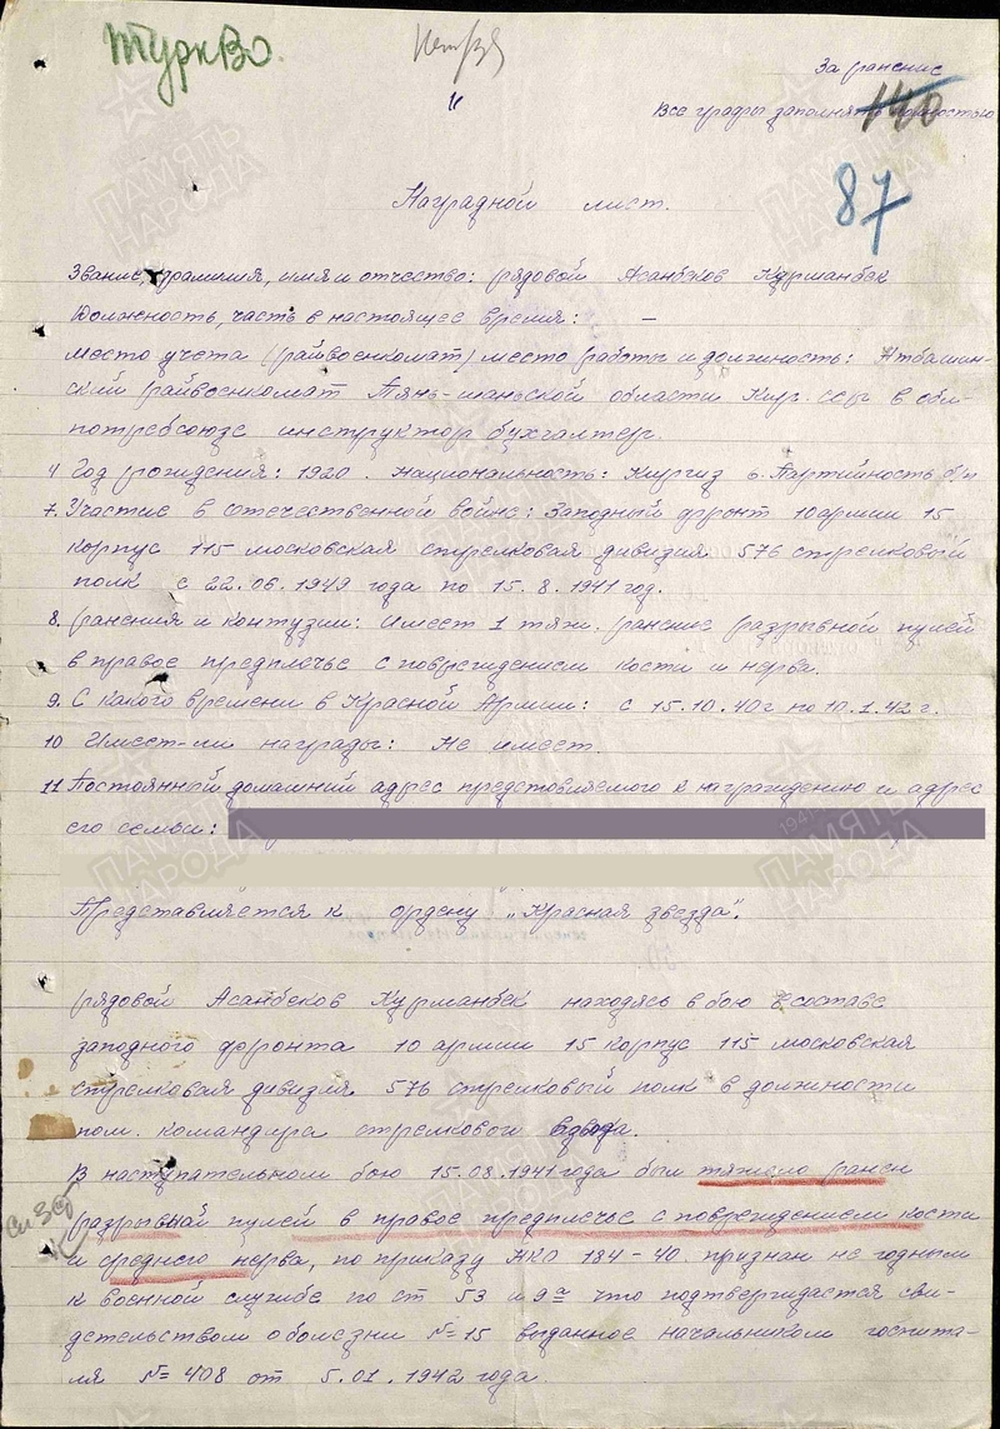 ТуркВО.
За ранение
Все графы заполнять полностью
140
87
Наградной лист.
Звание, фамилия, имя и отчество: рядовой Асанбеков Курманбек
Должность, часть в настоящее время: —
Место учета (райвоенкомат) место работы и должность: Атбашин-
ский райвоенкомат Тянь-шаньской области Кир. ССР в обл-
потребсоюзе инструктор бухгалтер.
4 Год рождения: 1920. Национальность: Киргиз 6. Партийность б/п
7. Участие в отечественной войне: Западный фронт 10 армии 15
корпус 115 московская стрелковая дивизия 576 стрелковый
полк с 22.06.1949 года по 15.8.1941 год.
8. Ранения и контузии: Имеет 1 тяж. ранение разрывной пулей
в правое предплечье с повреждением кости и нерва.
9. С какого времени в Красной Армии: с 15.10.40г по 10.1.42 г.
10 Имеет-ли награды: Не имеет.
11 Постоянный домашний адрес представляемого к награждению и адрес
его семьи:
Представляется к ордену „Красная звезда".
Рядовой Асанбеков Курманбек находясь в бою в составе
западного фронта 10 армии 15 корпус 115 московская
стрелковая дивизия 576 стрелковый полк в должности
пом. командира стрелковой взвода.
В наступательном бою 15.08.1941 года был тяжело ранен
разрывной пулей в правое предплечье с повреждением кости
и среднего нерва, по приказу НКО 184-40 признан не годным
к военной службе по ст 53 и 9а что подтверждается сви-
детельством о болезни №15 выданное начальником госпита-
ля № 408 от 5.01.1942 года.
ПАМЯТЬ НАРОДА